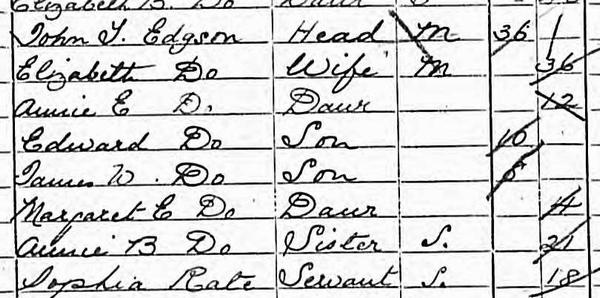 Elizabeth B. Do Daur
John T. Edgson Head M 36
Elizabeth Do Wife M 36
Annie E Do Daur 12
Edward Do Son 10
James W. Do Son
Margaret E Do Daur 4
Annie B Do Sister S. 21
Sophia Rate Servant S. 18